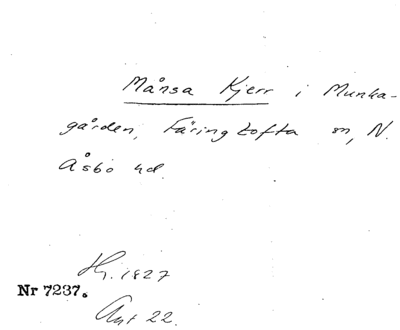 Månsa Kjerr i Munka-
gården, Färingtofta sn, N.
Åsbo hd.
Hj. 1827
Nr 7237.
Ant 22.